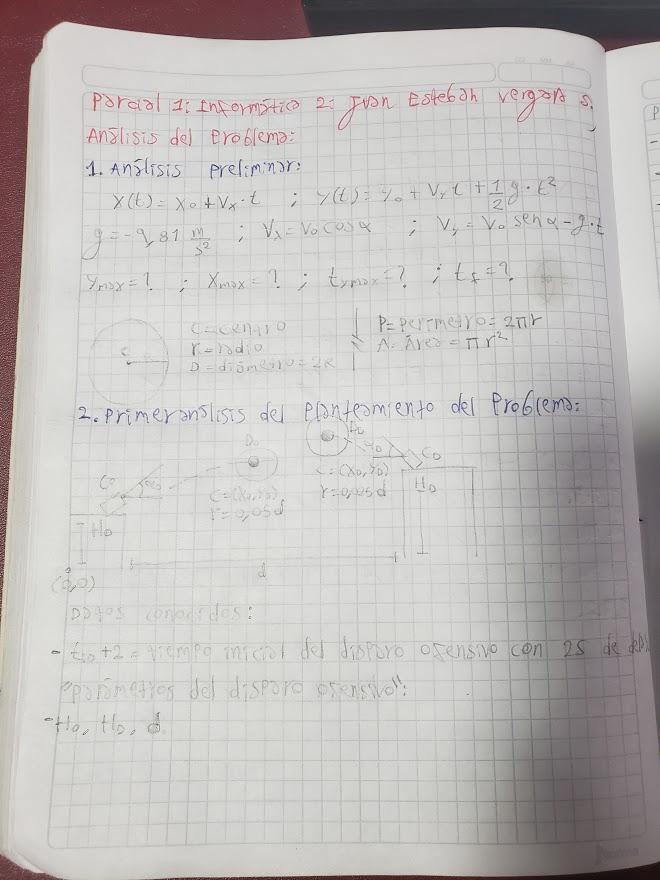 Parcial 1: Informática 2: Juan Esteban Vergara S.
Análisis del Problema:
1. Análisis preliminar:
X(t) = X0 + Vx·t ; Y(t) = Y0 + Vy t + 1/2 g·t²
g = -9,81 m/s² ; Vx = V0 cos α ; Vy = V0 sen α - g·t
Ymax = ? ; Xmax = ? ; txmax = ? ; tf = ?
C = centro
r = radio
D = diámetro = 2R
P = perímetro = 2πr
A = Área = πr²
C
2. Primer análisis del planteamiento del Problema:
D0
C0
C = (X0, Y0)
r = 0,05d
H0
C = (X0, Y0)
r = 0,05d
CD
HD
d
(0,0)
Datos conocidos:
- ti0 + 2 = tiempo inicial del disparo ofensivo con 2s de
"parámetros del disparo ofensivo":
- H0, HD, d